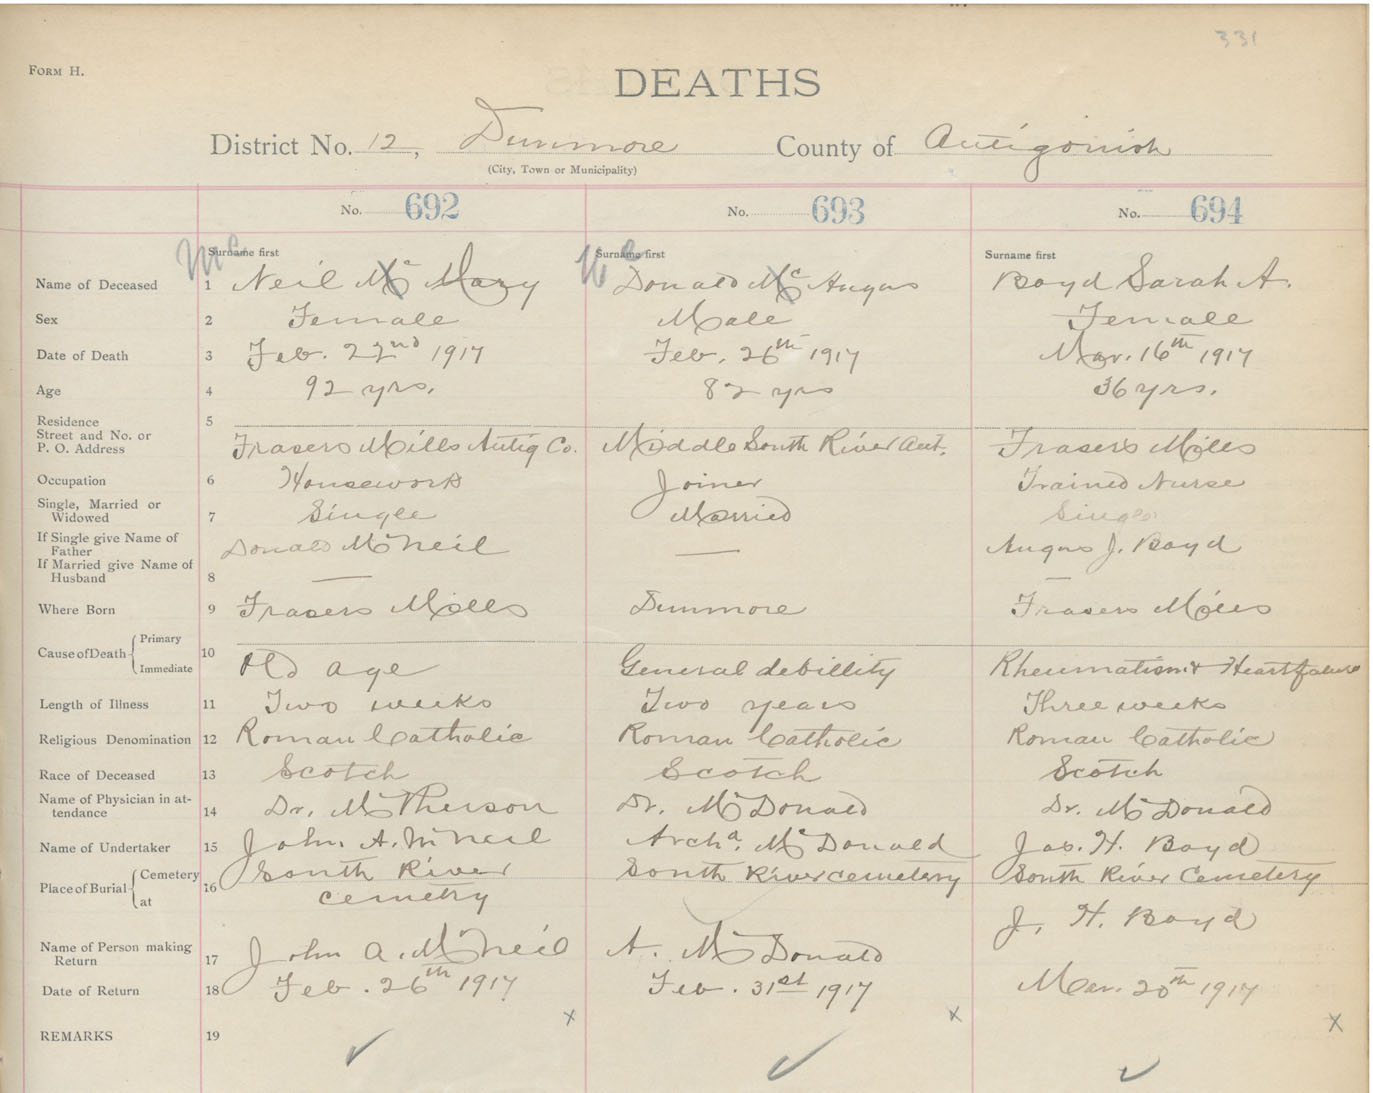 331
FORM H.
DEATHS
District No. 12, Dunmore County of Antigonish
(City, Town or Municipality)
No. 692 No. 693 No. 694
Mc Surname first Mc Surname first Surname first
Name of Deceased 1 Neil Mc Mary Donald Mc Angus Boyd Sarah A.
Sex 2 Female Male Female
Date of Death 3 Feb. 22nd 1917 Feb. 26th 1917 Mar. 16th 1917
Age 4 92 yrs. 82 yrs 36 yrs.
Residence 5
Street and No. or
P. O. Address Frasers Mills Antig Co. Middle South River Ant. Frasers Mills
Occupation 6 Housework Joiner Trained Nurse
Single, Married or
Widowed 7 Single Married Single
If Single give Name of
Father Donald McNeil — Angus J. Boyd
If Married give Name of
Husband 8 — —
Where Born 9 Frasers Mills Dunmore Frasers Mills
Cause of Death Primary 10
Immediate Old age General debillity Rheumatism & Heart failure
Length of Illness 11 Two weeks Two years Three weeks
Religious Denomination 12 Roman Catholic Roman Catholic Roman Catholic
Race of Deceased 13 Scotch Scotch Scotch
Name of Physician in at-
tendance 14 Dr. McPherson Dr. McDonald Dr. McDonald
Name of Undertaker 15 John A. McNeil Archd. McDonald Jas. H. Boyd
Place of Burial Cemetery 16 South River South River cemetery South River Cemetery
at cemetry
J. H. Boyd
Name of Person making
Return 17 John A. McNeil A. McDonald
Date of Return 18 Feb. 26th 1917 Feb. 31st 1917 Mar. 20th 1917
x x x
REMARKS 19 ✓ ✓ ✓